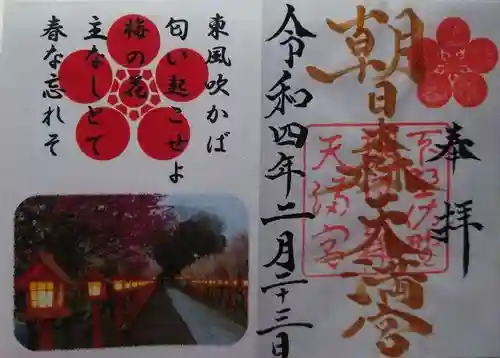 東風吹かば
匂い起こせよ
梅の花
主なしとて
春な忘れそ
奉拝
朝日森天満宮
天満宮
令和四年二月二十三日